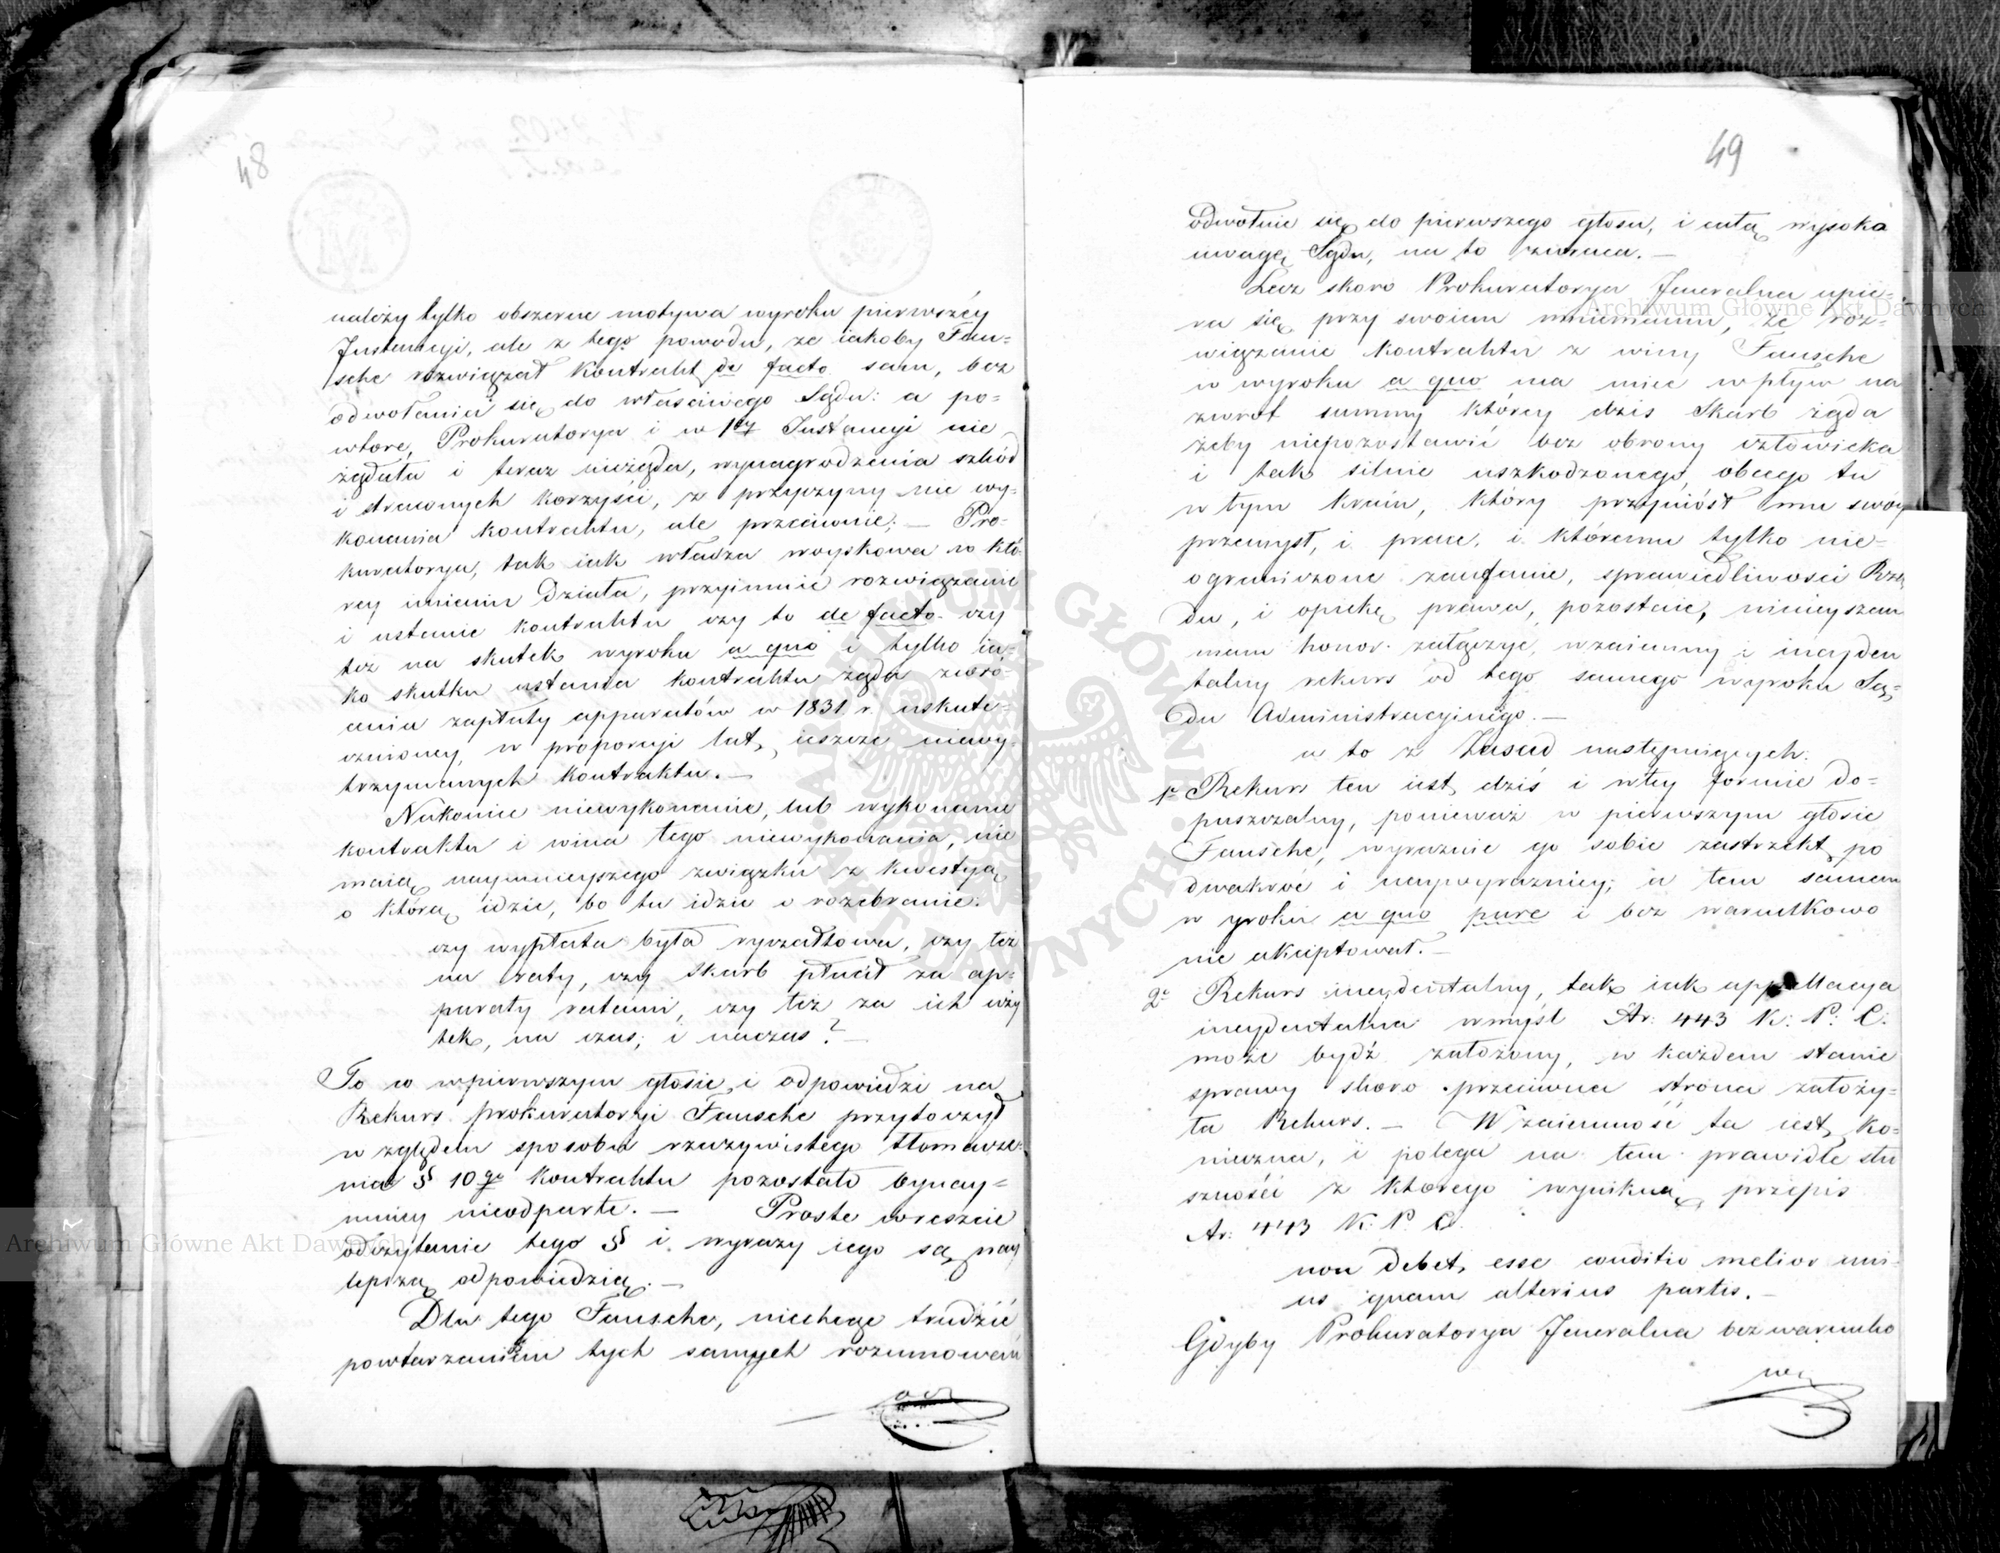 48
należy tylko obszerne motywa wyroku pierwszéy
Instancyi, ale z tego powodu, że iakoby Fau-
sche rozwiązał Kontrakt de facto sam, bez
odwołania się do właściwego Sądu: a po-
wtóre, Prokuratorya i w 1éy Instancyi nie
żądała i teraz nieżąda, wynagrodzenia szkód
i straconych korzyści, z przyczyny nie wy-
konania kontraktu, ale przeciwnie; — Pro-
kuratorya, tak iak władza woyskowa w któ-
rey imieniu działa, przyimuie rozwiązanie
i ustanie kontraktu czy to de facto czy
też na skutek wyroku a quo i tylko ia-
ko skutku ustania kontraktu żąda zwró-
cania zapłaty apparatów w 1831. r. uskute-
cznioney, w proporcyi lat, ieszcze niewy-
trzymanych kontraktu. —
Nakoniec niewykonanie, lub wykonanie
kontraktu i wina tego niewykonania, nie
maią naymnieyszego związku z kwestyą
o którą idzie, bo tu idzie o rozebranie:
czy wypłata była ryczałtowa, czy też
na raty, czy skarb płacił za ap-
paraty ratami, czy też za ich uży
tek, na czas; i naczas? —
To co wpierwszym głosie i odpowiedzi na
Rekurs prokuratoryi Fausche przytoczył
względem sposobu rzeczywistego tłomacze-
nia § 10go kontraktu pozostało bynay-
mniey nieodparte. — Proste wreszcie
odczytanie tego § i wyrazy iego są nay
lepszą odpowiedzią. —
Dla tego Fausche, niechcąc trudzić
powtarzaniem tych samych rozumowań
49
odwołuie się do pierwszego głosu, i całą wysoką
uwagę Sądu, na to zwraca. —
Lecz skoro Prokuratorya Jeneralna upie-
ra się przy swoiem mniemaniu, że roz-
wiązanie kontraktu z winy Fausche
w wyroku a quo ma mieć wpływ na
zwrot summy którey dziś Skarb żąda
żeby niepozostawić bez obrony człowieka
i tak silnie uszkodzonego, obcego tu
w tym kraiu, który przyniósł mu swoy
przemysł, i pracę, i któremu tylko nie-
ograniczone zaufanie, sprawiedliwości Rzą
du, i opiekę prawa, pozostaie, ninieyszem
mam honor załączyć, wzaiemny i incyden
talny rekurs od tego samego wyroku Są-
du Administracyinego. —
a to z Zasad następuiących:
1e Rekurs ten iest dziś i wtey formie do-
puszczalny, ponieważ w pierwszym głosie
Fausche, wyraźnie go sobie zastrzekł po
dwakroć i naywyraźniey; a tem samem
wyroku a quo pure i bez warunkowo
nie akceptował. —
2e Rekurs incydentalny, tak iak appellacya
incydentalna wmyśl Ar: 443 K: P: C:
może bydź założony, w każdem stanie
sprawy skoro przeciwna strona założy-
ła Rekurs. — Wzaiemność ta iest ko-
nieczna, i polega na tem prawidle słu
szności z którego wynika przepis
Ar: 443 K: P C.
non debet esse conditio melior uni-
us quam alterius partis. —
Gdyby Prokuratorya Jeneralna bezwarunko
wo
Archiwum Główne Akt Dawnych
Archiwum Główne Akt Dawnych